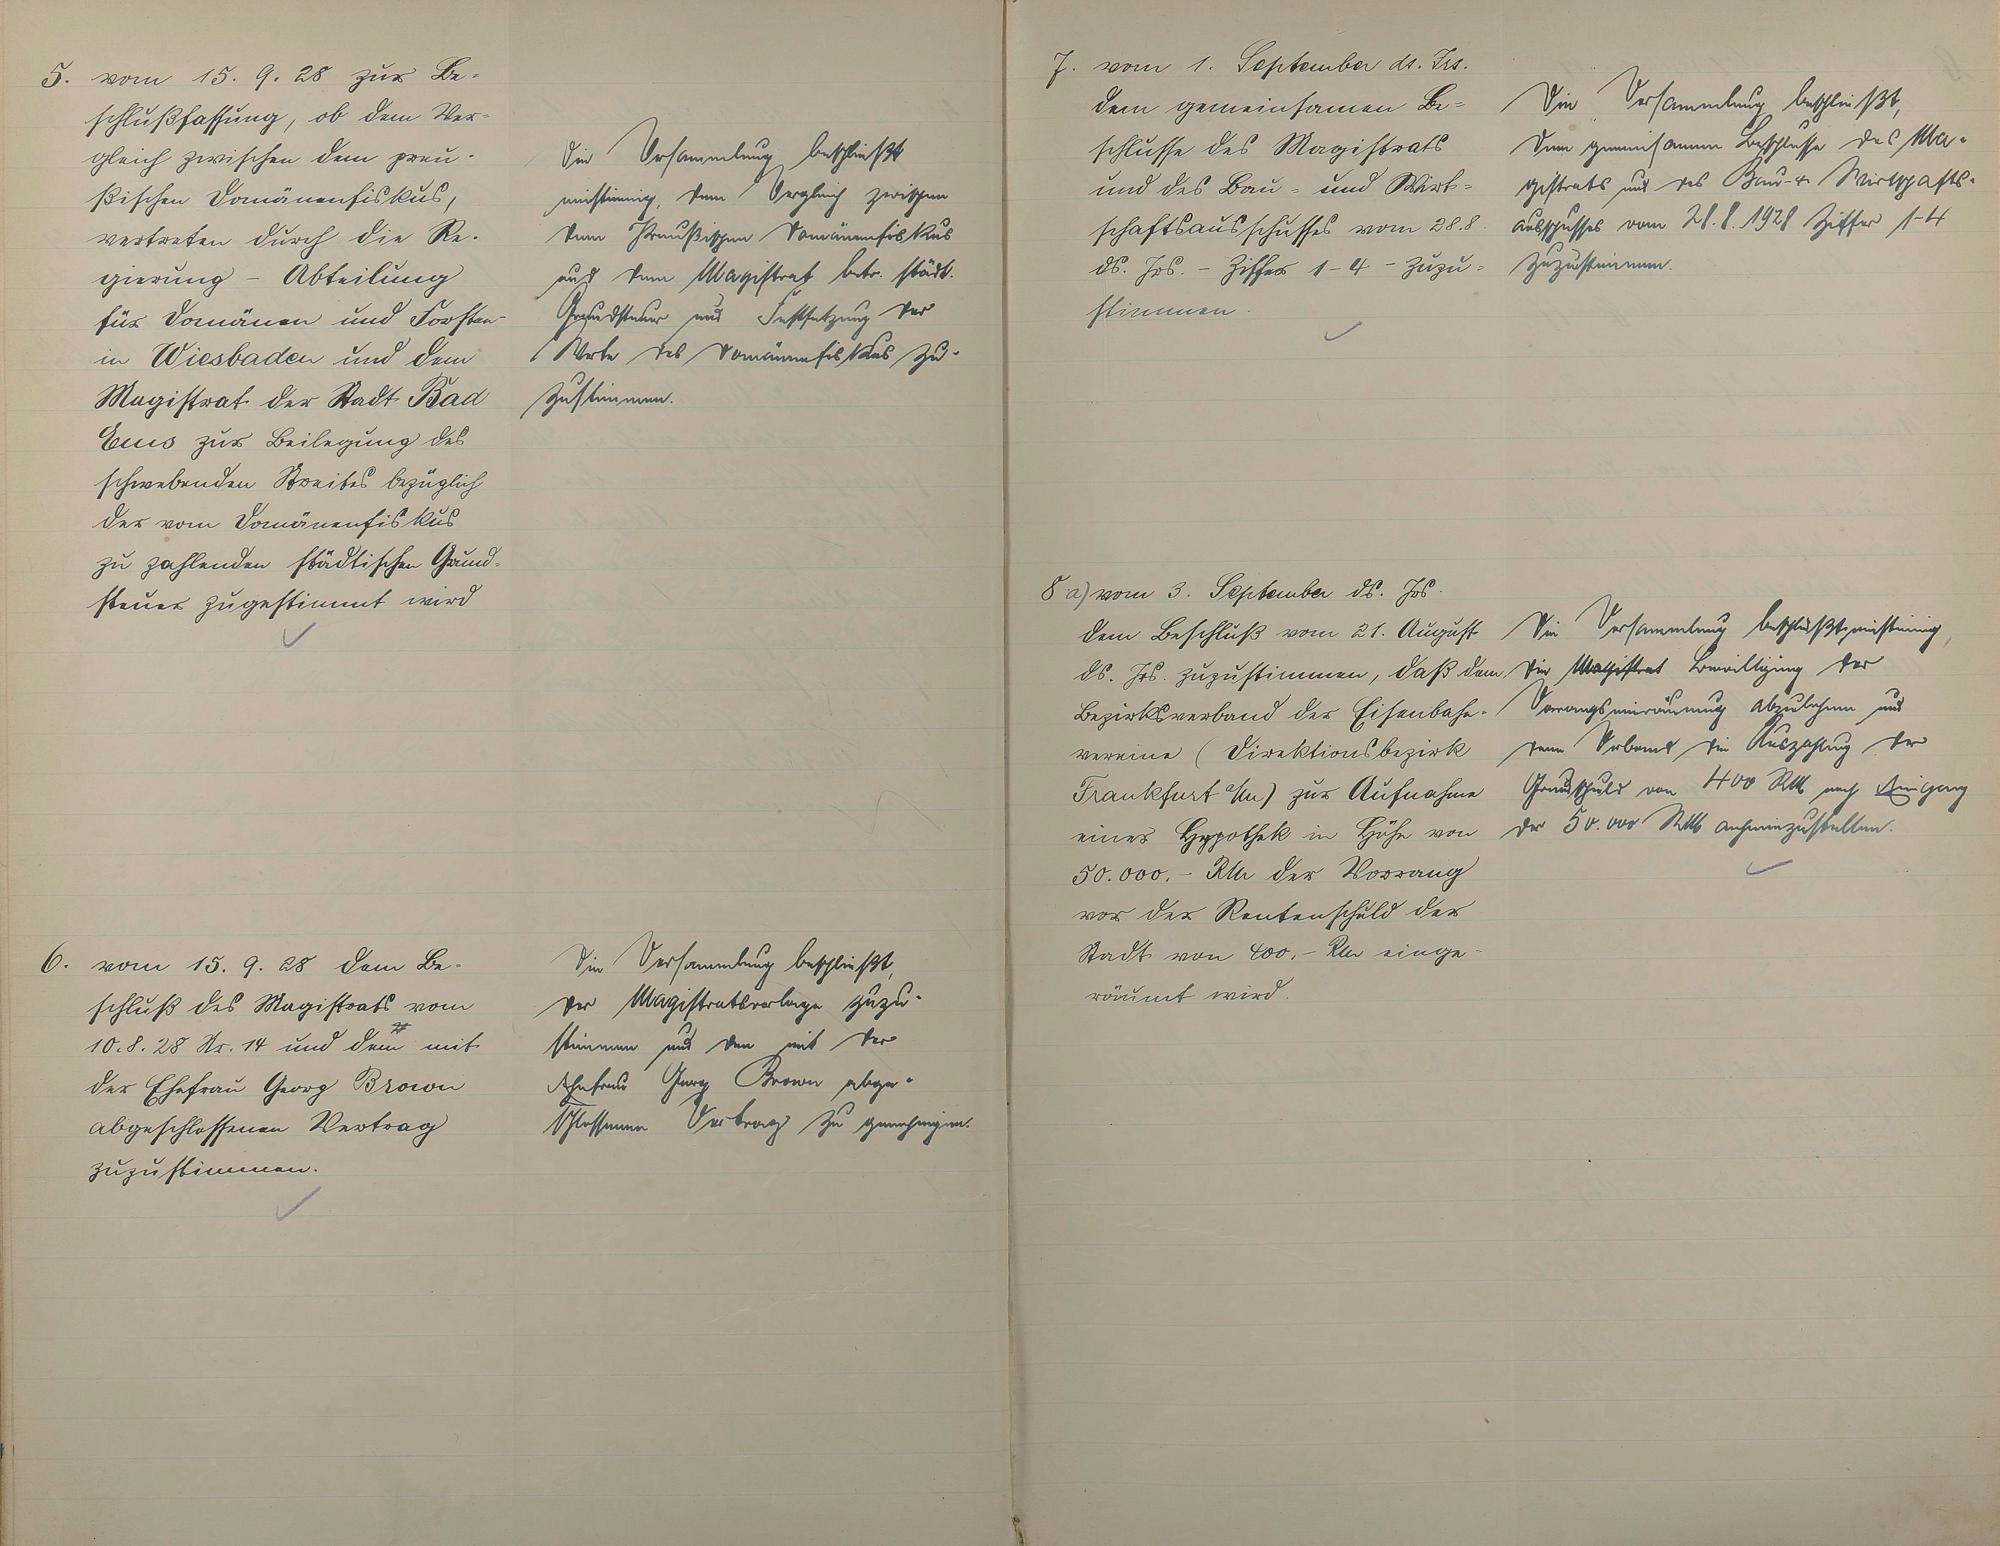 5. vom 15. 9. 28 zur Be=
schlußfassung, ob dem Ver-
gleich zwischen dem preu-
ßischen Domänenfiskus,
vertreten durch die Re-
gierung - Abteilung
für Domänen und Forsten-
in Wiesbaden und dem
Magistrat der Stadt Bad
Ems zur Beilegung des
schwebenden Streites bezüglich
der vom Domänenfiskus
zu zahlenden städtischen Grund-
steuer zugestimmt wird
Die Versammlung beschließt
einstimmig, dem Vergleich zwischen
dem Preußischen Domänenfiskus
und dem Magistrat betr. städt.
Grundsteuer und Festsetzung der
Werte des Domänenfiskus zu-
zustimmen.
6. vom 15. 9. 28 dem Be-
schluß des Magistrats vom
10. 8. 28 Nr. 14 und dem mit
der Ehefrau Georg Brown
abgeschlossenen Vertrag
zuzustimmen.
Die Versammlung beschließt,
der Magistratsvorlage zuzu-
stimmen und den mit der
Ehefrau Georg Brown abge-
schlossenen Vertrag zu genehmigen.
7. vom 1. September ds. Jrs.
dem gemeinsamen Be=
schlusse des Magistrats
und des Bau= und Wirt=
schaftsausschusses vom 28.8.
ds. Jrs. - Ziffer 1-4 - zuzu=
stimmen.
Die Versammlung beschließt,
dem gemeinsamen Beschlusse des Ma-
gistrats und des Bau- & Wirtschafts-
ausschusses vom 28. 8. 1928 Ziffer 1-4
zuzustimmen.
8 a) vom 3. September ds. Jrs.
dem Beschluß vom 21. August
ds. Jrs. zuzustimmen, daß dem
Bezirksverband der Eisenbahn-
vereine (Direktionsbezirk
Frankfurt a/M) zur Aufnahme
einer Hypothek in Höhe von
50.000.- RM der Vorrang
vor der Rentenschuld der
Stadt von 400.- RM einge-
räumt wird.
Die Versammlung beschließt einstimmig,
die Magistrat Bewilligung der
Vorrangseinräumung abzulehnen und
dem Verband die Auszahlung der
Grundschuld von 400 RM nach Eingang
der 50.000 RM anheimzustellen.